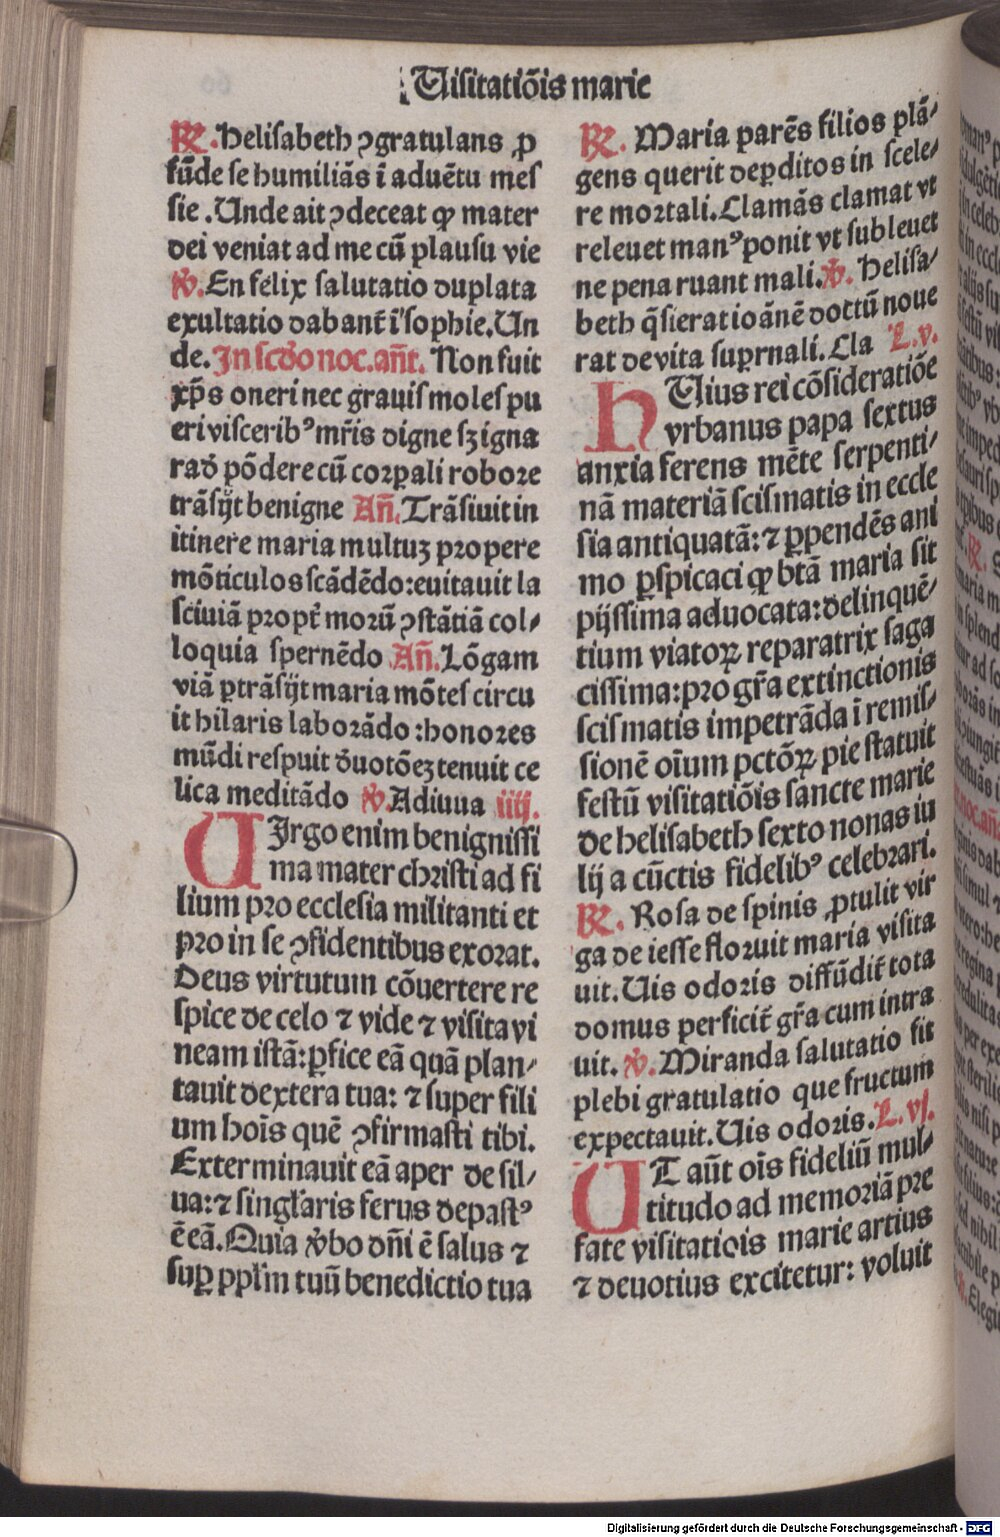 Uisitatiōis marie
℟. Helisabeth ꝯgratulans ꝓ
fūde se humiliās ī aduētu mes
sie .Unde ait ꝯdeceat ꝙ mater
dei veniat ad me cū plausu vie
℣. En felix salutatio duplata
exultatio dabant̄ i'sophie.Un
de. In scd̄o noc. an̄t. Non fuit
xp̄s oneri nec grauis moles pu
eri viscerib⁹ mr̄is digne sꝫ igna
rad̄ pōdere cū corꝑali robore
trāsijt benigne An̄. Trāsiuit in
itinere maria multuꝫ propere
mōticulos scādēdo:euitauit la
sciuiā propt̄ morū ꝯstātiā col⸗
loquia spernēdo An̄. Lōgam
viā ꝑtrāsijt maria mōtes circu
it hilaris laborādo :honores
mūdi respuit d̄uotōeꝫ tenuit ce
lica meditādo ℣. Adiuua iiij.
UIrgo enim benignissi
ma mater christi ad fi
lium pro ecclesia militanti et
pro in se ꝯfidentibus exorat.
Deus virtutum cōuertere re
spice de celo ⁊ vide ⁊ visita vi
neam istā: ꝑfice eā quā plan⸗
tauit dextera tua: ⁊ super fili
um hoīs quē ꝯfirmasti tibi.
Exterminauit eā aper de sil⸗
ua:⁊ singl̄aris ferus depast⁹
ē eā. Quia v̄bo dn̄i ē salus ⁊
suꝑ ppl̄m tuū benedictio tua
℟. Maria parēs filios plā⸗
gens querit deꝑditos in scele⸗
re mortali. Clamās clamat vt
releuet man⁹ ponit vt subleuet
ne pena ruant mali. ℣. Helisa⸗
beth q̄sierat ioānē doctū noue
rat de vita suꝑnali. Cla L.v.
HUius rei cōsideratiōe
vrbanus papa sextus
anxia ferens mēte serpenti⸗
nā materiā scismatis in eccle
sia antiquatā: ⁊ ꝑpendēs ani
mo ꝑspicaci ꝙ btā maria sit
pijssima aduocata: delinquē⸗
tium viatoꝝ reparatrix saga
cissima: pro gr̄a extinctionis
scismatis impetrāda ī remis⸗
sionē oīum pctōꝝ pie statuit
festū visitatiōis sancte marie
de helisabeth sexto nonas iu
lij a cūctis fidelib⁹ celebrari.
℟. Rosa de spinis ꝓtulit vir
ga de iesse floruit maria visita
uit. Uis odoris diffūdit̄ tota
domus perficit̄ gr̄a cum intra
uit. ℣. Miranda salutatio fit
plebi gratulatio que fructum
expectauit. Uis odoris. L.vj.
UT aūt oīs fideliū mul⸗
titudo ad memoriā pre
fate visitatiōis marie artius
⁊ deuotius excitetur: voluit
Digitalisierung gefördert durch die Deutsche Forschungsgemeinschaft - DFG